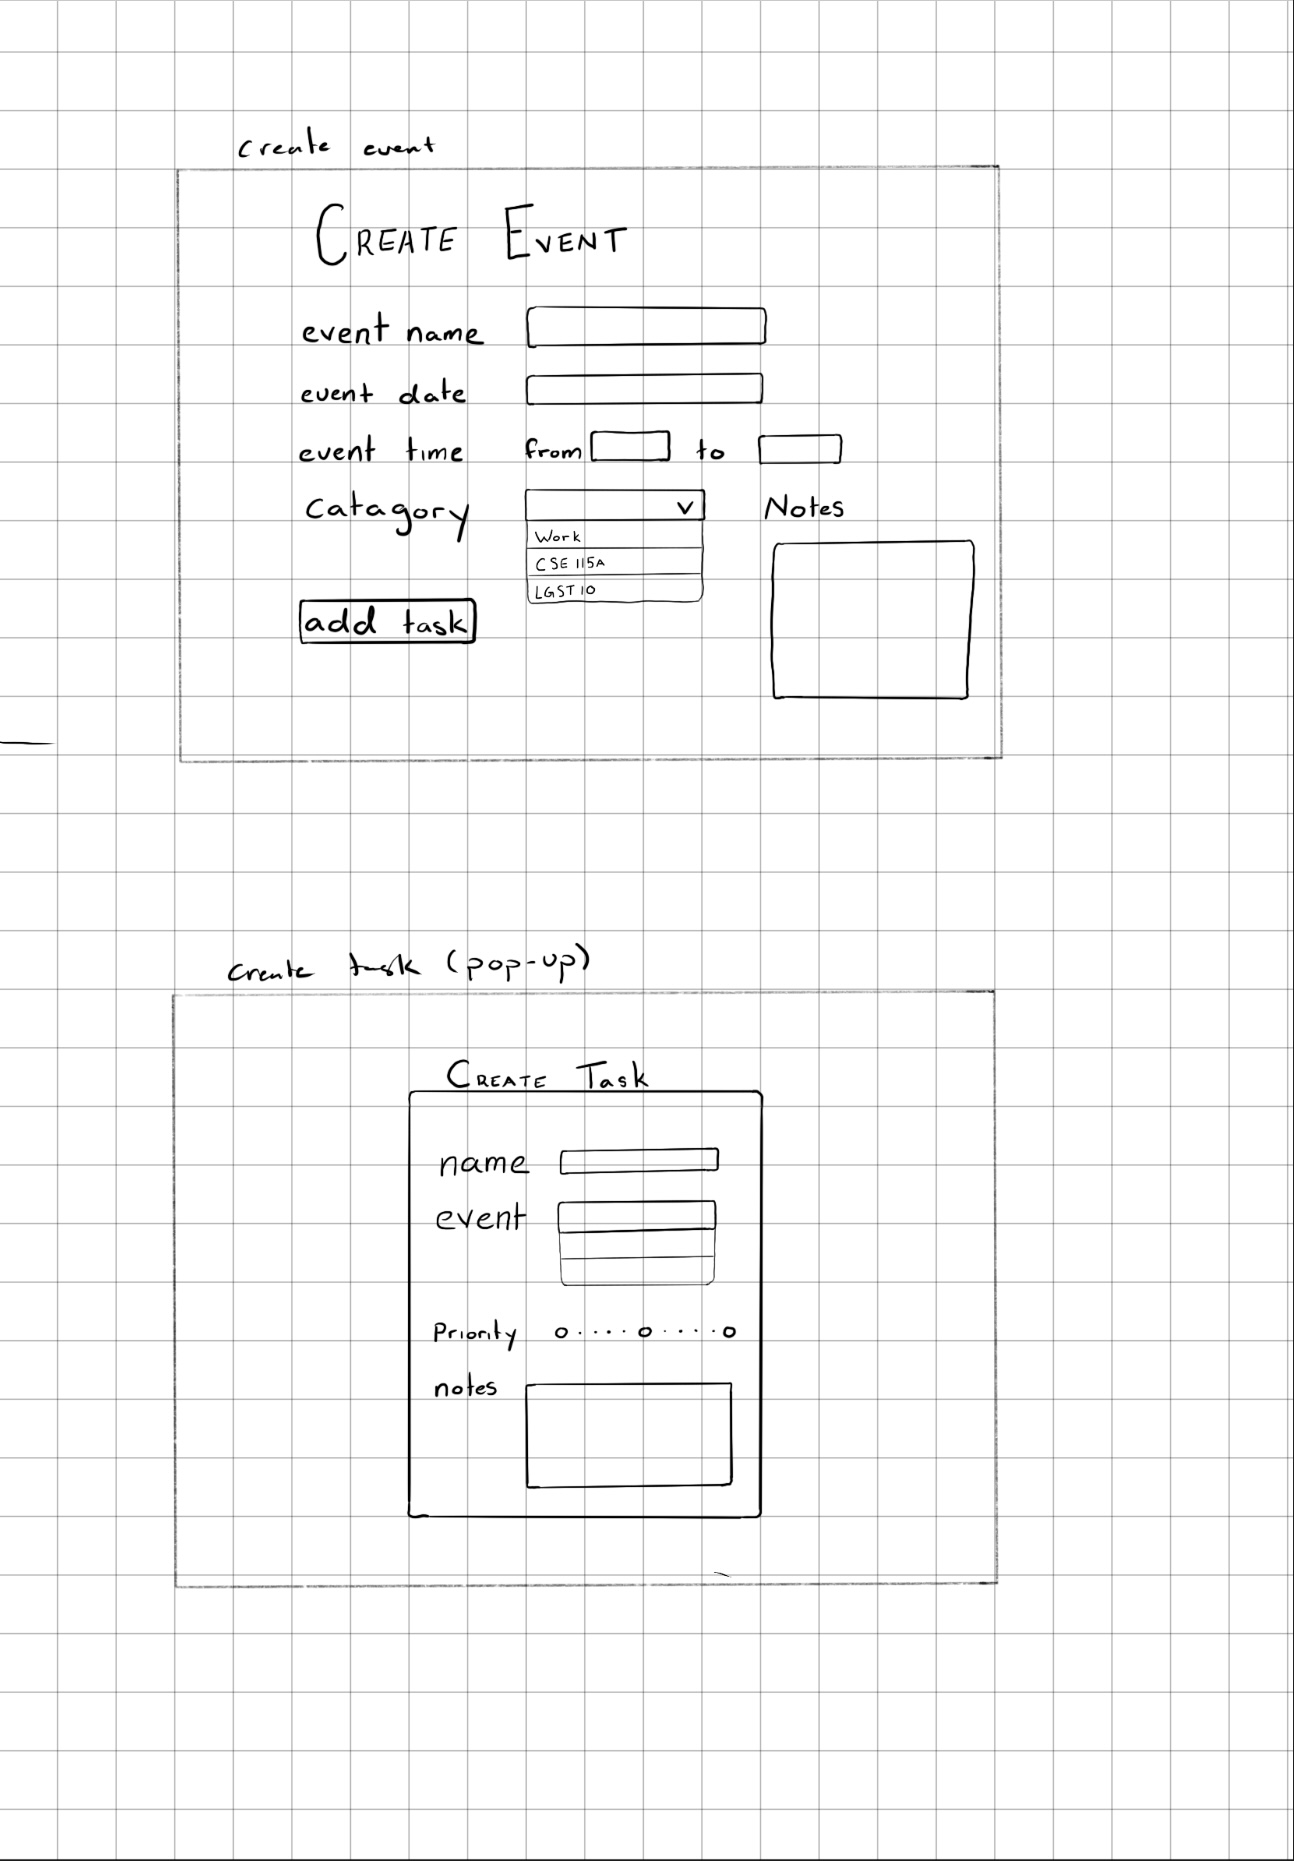 create event
CREATE EVENT
event name
event date
event time from to
catagory v Notes
Work
CSE 115A
LGST 10
add task
create task (pop-up)
CREATE Task
name
event
Priority
notes